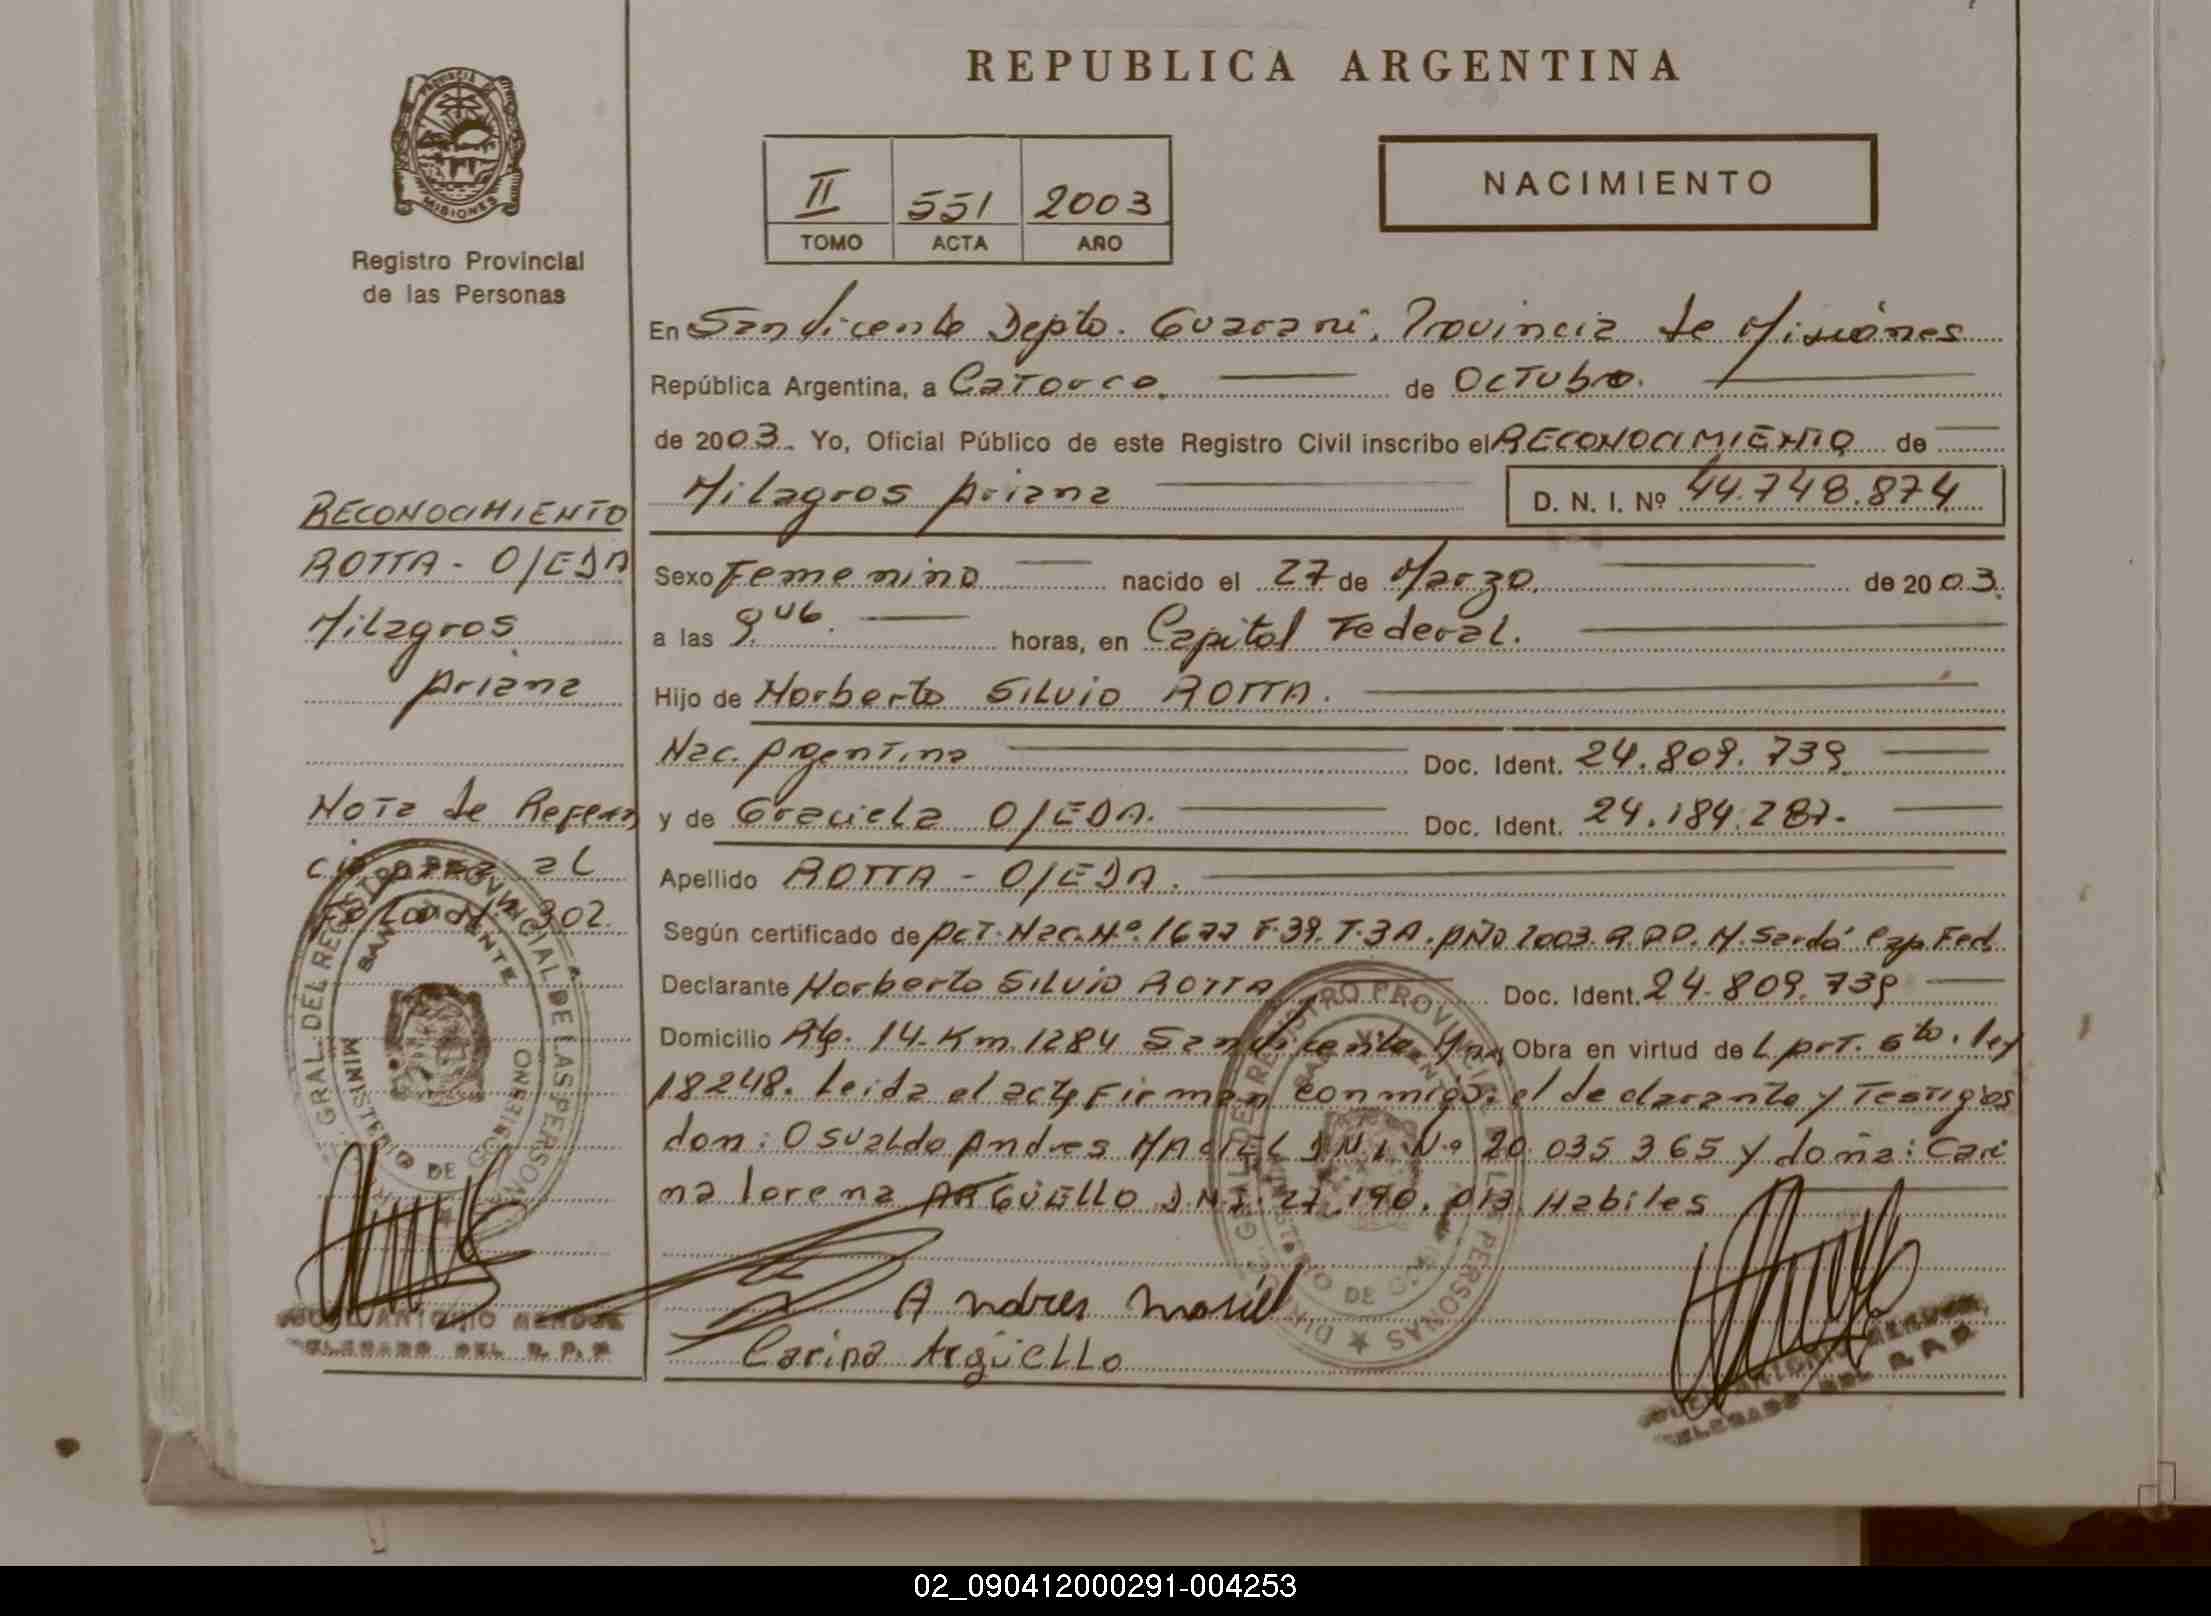 REPUBLICA ARGENTINA
PROVINCIA DE
MISIONES
Registro Provincial
de las Personas
II 551 2003
TOMO ACTA AÑO
NACIMIENTO
En San Vicente Depto. Guaraní. Provincia de Misiónes
República Argentina, a Catorce. de Octubre.
de 2003. Yo, Oficial Público de este Registro Civil inscribo el RECONOCIMIENTO de
Milagros Ariana D. N. I. Nº 44.748.874
Sexo Femenino nacido el 27 de Marzo. de 2003.
a las 9,46. horas, en Capital Federal.
Hijo de Norberto SILVIO ROTTA.
Nac. Argentina Doc. Ident. 24.809.739.
y de Graciela OJEDA. Doc. Ident. 24.184.287.
Apellido ROTTA - OJEDA.
Según certificado de Act. Nac. Nº. 1677 F.39. T.3A. Año 2003. M. Sardá Cap. Fed.
Declarante Norberto SILVIO ROTTA Doc. Ident. 24.809.739
Domicilio 14. Km 1284 San Vicente Obra en virtud de L Art. 6to. ley
18248. Leida el acta Firman conmigo. el declarante y Testigos
don: Osvaldo Andres MACIEL D.N.I. Nº 20.035.365 y doña: Cari
na Lorena ARGÜELLO D.N.I. 27.190.013 Habiles
Andres Masiel
Carina Argüello
RECONOCIMIENTO
ROTTA - OJEDA
Milagros
Ariana
Nota de Referen
cia pasa al
Folio Nº 302.
GRAL. DEL REGISTRO PROVINCIAL DE LAS PERSONAS
SAN VICENTE
MINISTERIO DE GOBIERNO
REGISTRO PROVINCIAL DE LAS PERSONAS
MINISTERIO DE GOBIERNO
ANTONIO MENDEZ
DELEGADO DEL R. P. P.
ANTONIO MENDEZ
DELEGADO DEL
02_090412000291-004253